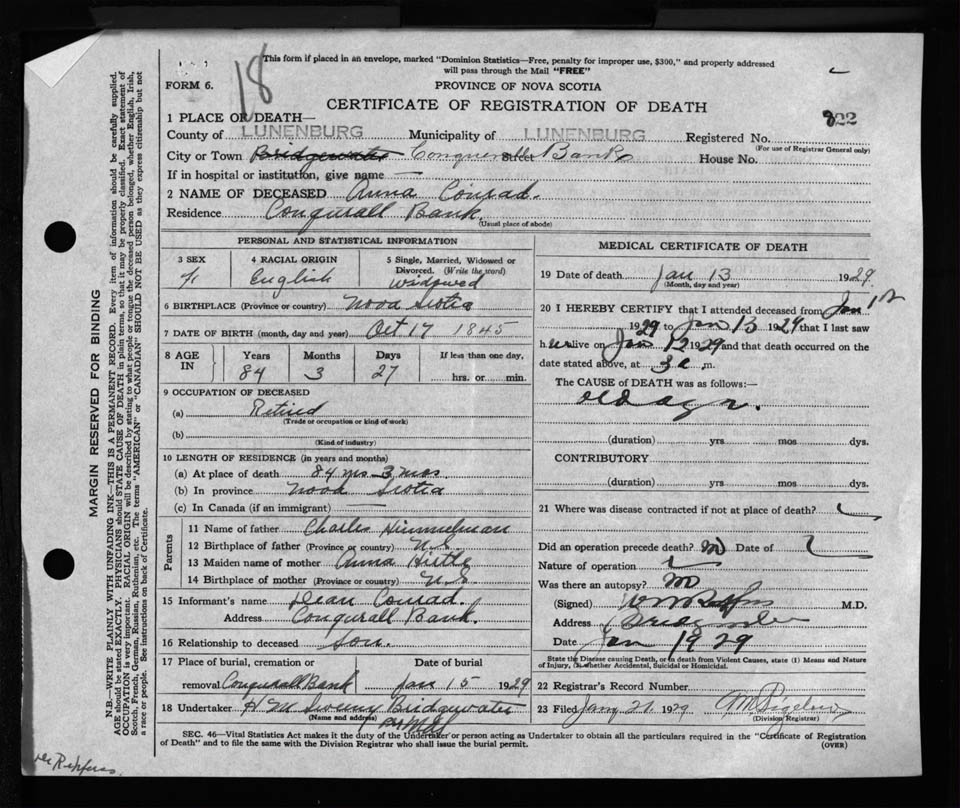 18
This form if placed in an envelope, marked "Dominion Statistics—Free, penalty for improper use, $300," and properly addressed
will pass through the Mail "FREE"
FORM 6.
PROVINCE OF NOVA SCOTIA
CERTIFICATE OF REGISTRATION OF DEATH
822
1 PLACE OF DEATH—
County of LUNENBURG Municipality of LUNENBURG Registered No.
(For use of Registrar General only)
City or Town Bridgewater Conquerall Street Bank House No.
If in hospital or institution, give name —
2 NAME OF DECEASED Anna Conrad.
Residence Conqurall Bank.
(Usual place of abode)
PERSONAL AND STATISTICAL INFORMATION
3 SEX F. 4 RACIAL ORIGIN English 5 Single, Married, Widowed or Divorced. (Write the word) Widowed
6 BIRTHPLACE (Province or country) Nova Scotia
7 DATE OF BIRTH (month, day and year) Oct 17 1845
8 AGE IN Years Months Days If less than one day,
84 3 27 hrs. or min.
9 OCCUPATION OF DECEASED
(a) Retired
(Trade or occupation or kind of work)
(b)
(Kind of industry)
10 LENGTH OF RESIDENCE (in years and months)
(a) At place of death 84 yrs 3 mos.
(b) In province Nova Scotia
(c) In Canada (if an immigrant) —
Parents
11 Name of father Charles Himmelman
12 Birthplace of father (Province or country) N.S.
13 Maiden name of mother Anna Hirtle
14 Birthplace of mother (Province or country) N.S.
15 Informant's name Dean Conrad.
Address Conqurall Bank.
16 Relationship to deceased son.
17 Place of burial, cremation or removal Conqurall Bank Date of burial Jan 15 1929
18 Undertaker H M Bridgewater
(Name and address)
MEDICAL CERTIFICATE OF DEATH
19 Date of death Jan 13 1929.
(Month, day and year)
20 I HEREBY CERTIFY that I attended deceased from Jan 1st
1929 to Jan 13 1929 that I last saw
her alive on Jan 12 1929 and that death occurred on the
date stated above, at 3 a. m.
The CAUSE of DEATH was as follows:—
old age.
(duration) yrs mos dys.
CONTRIBUTORY
(duration) yrs mos dys.
21 Where was disease contracted if not at place of death?
Did an operation precede death? no Date of
Nature of operation
Was there an autopsy? no
(Signed) M.D.
Address Bridgewater
Date Jan 1929
State the Disease causing Death, or in death from Violent Causes, state (1) Means and Nature
of Injury, (2) whether Accidental, Suicidal or Homicidal.
22 Registrar's Record Number
23 Filed Jany 21 1929
(Division Registrar)
SEC. 46—Vital Statistics Act makes it the duty of the Undertaker or person acting as Undertaker to obtain all the particulars required in the "Certificate of Registration
of Death" and to file the same with the Division Registrar who shall issue the burial permit.
(OVER)
MARGIN RESERVED FOR BINDING
N.B.—WRITE PLAINLY WITH UNFADING INK—THIS IS A PERMANENT RECORD. Every item of information should be carefully supplied.
AGE should be stated EXACTLY. PHYSICIANS should STATE CAUSE OF DEATH in plain terms, so that it may be properly classified. Exact statement of
OCCUPATION is very important. RACIAL ORIGIN will be described by stating to what people or tongue the deceased person belonged, whether English, Irish,
Scotch, French, German, Russian, Ruthenian, etc. The terms "AMERICAN" or "CANADIAN" SHOULD NOT BE USED as they express citizenship but not
a race or people. See instructions on back of Certificate.